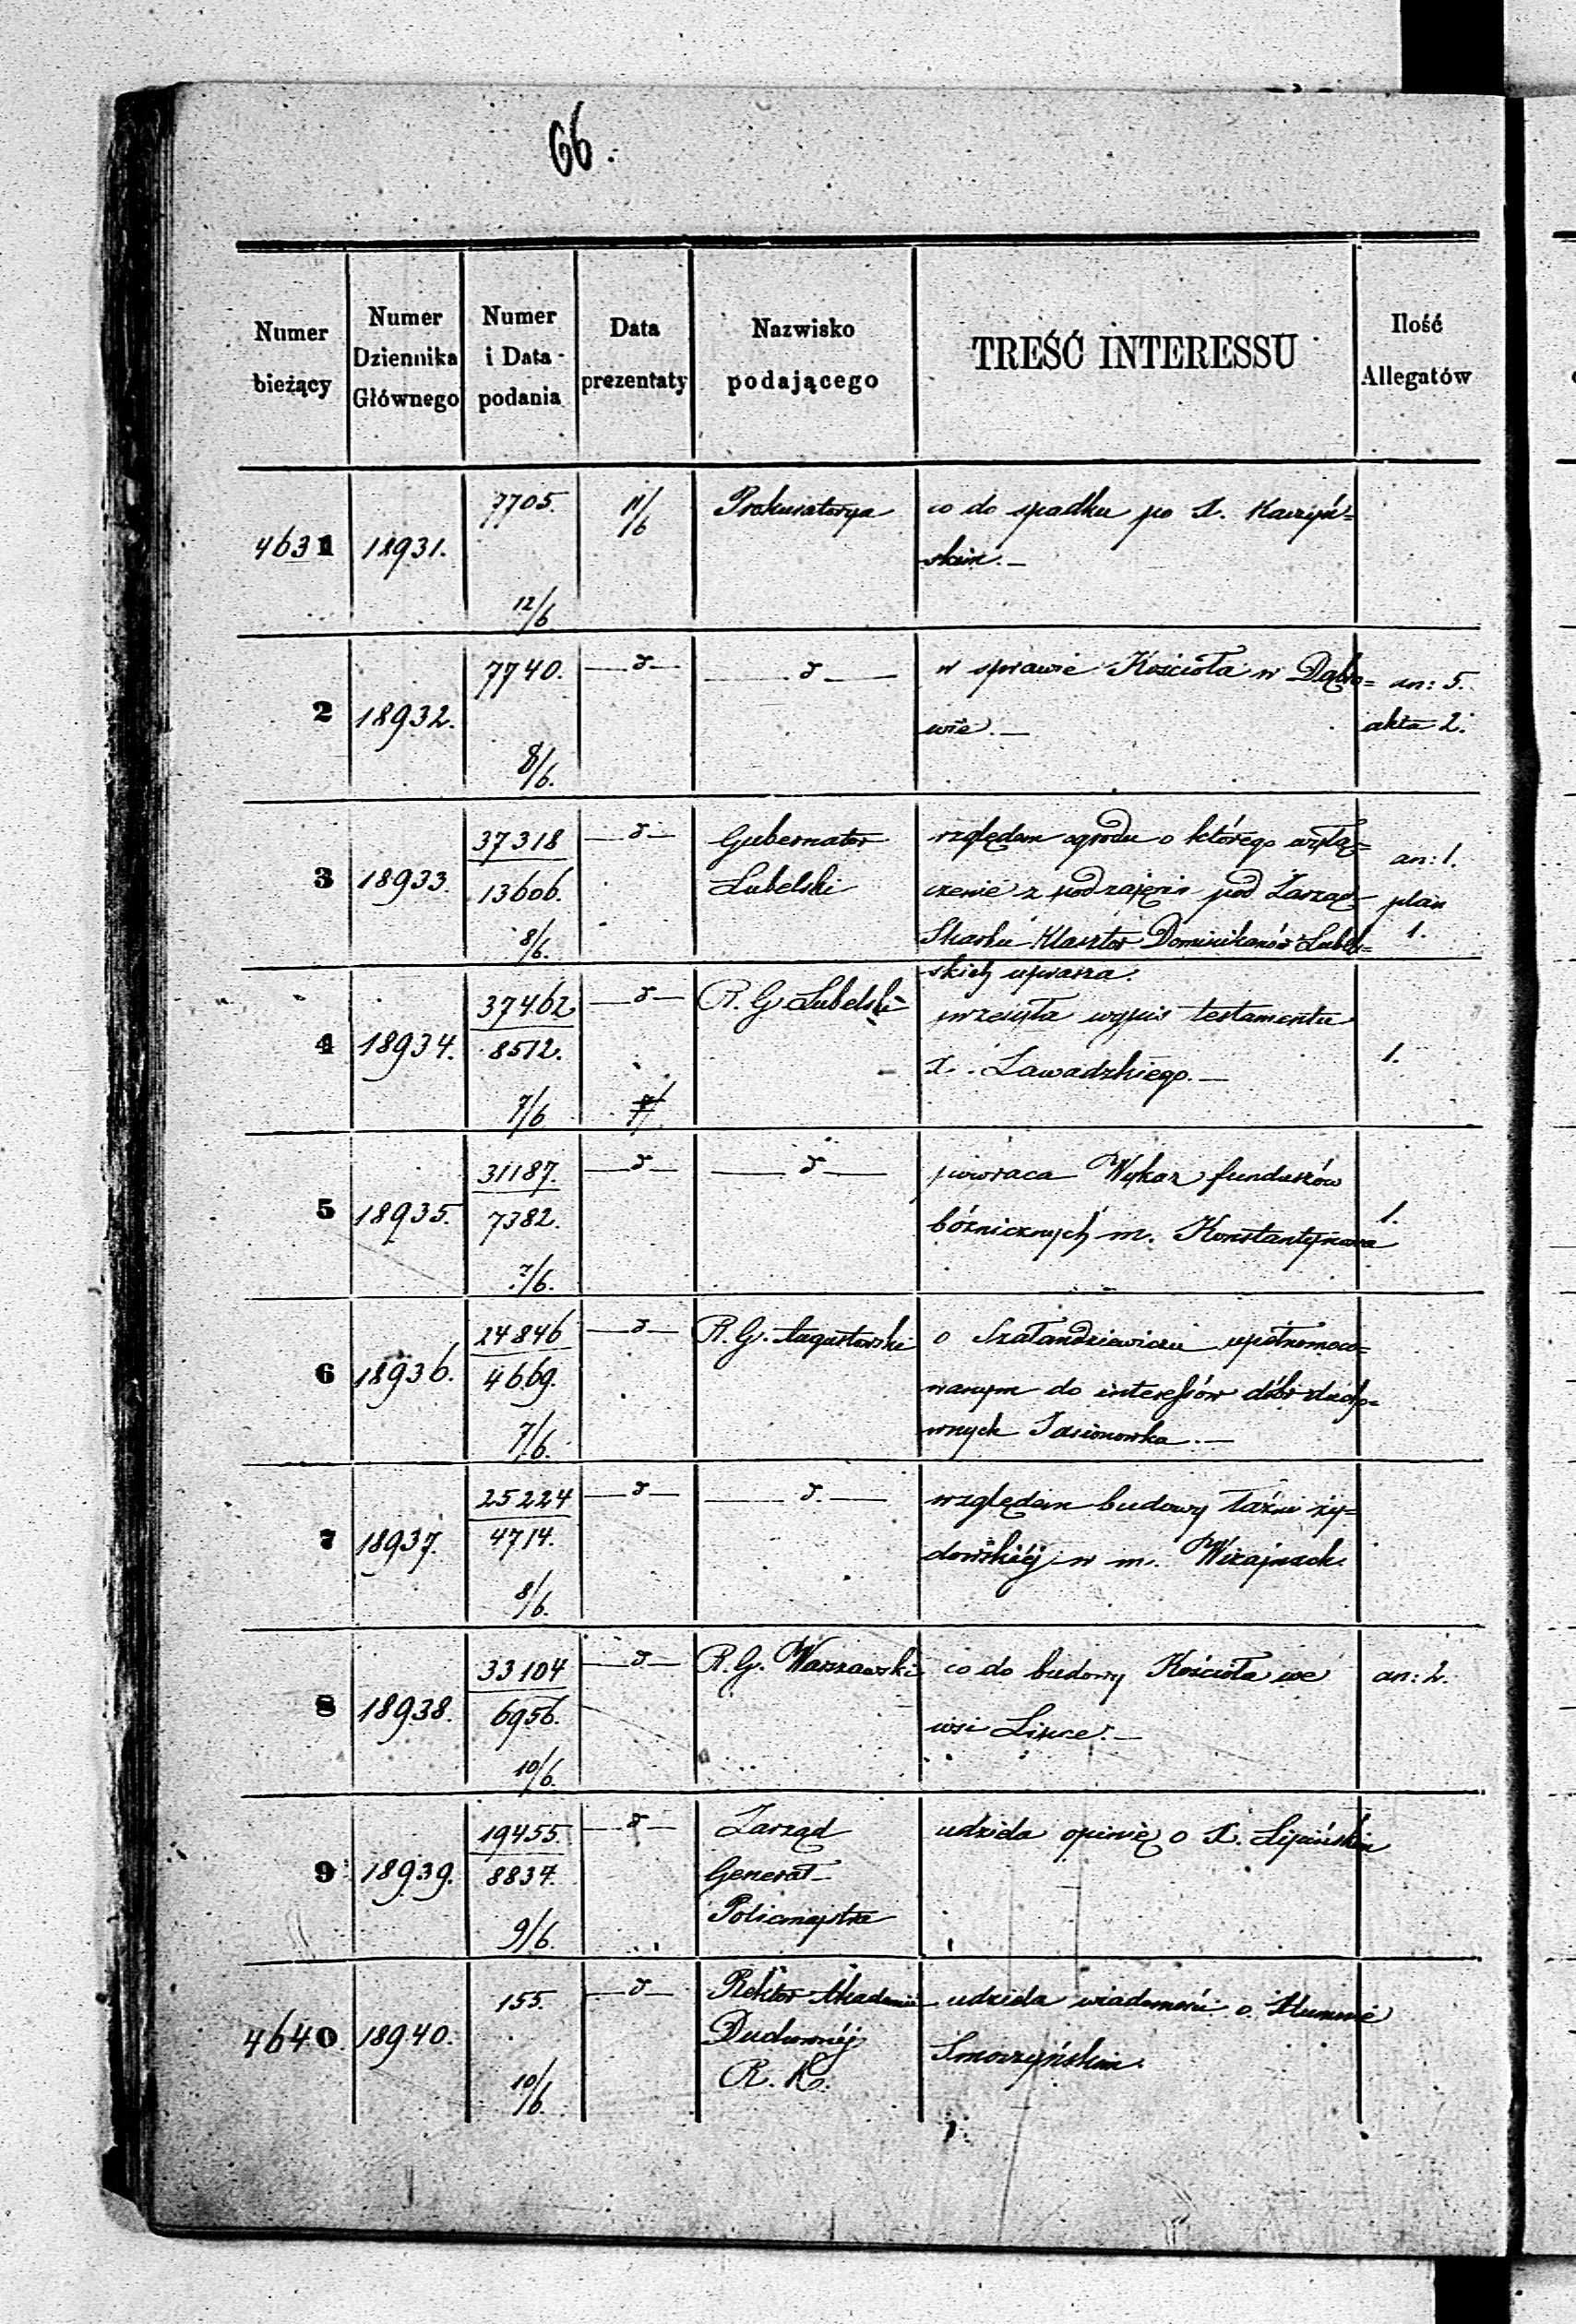 66.
Numer bieżący
Numer Dziennika Głównego
Numer i Data podania
Data prezentaty
Nazwisko podającego
TREŚĆ INTERESSU
Ilość Allegatów
4631 18931. 7705. 12/6 11/6 Prokuratorya co do spadku po X. Kaczyń=
skim.—
2 18932. 7740. 8/6. —d— —d— w sprawie Kościoła w Dąbro= an: 5.
wie.— akta 2.
3 18933. 37318 13606. 8/6. —d— Gubernator Lubelski względem ogrodu o którego wyłą= an: 1.
czenie z pod zajęcia pod Zarząd plan
Skarbu Klasztor Dominikanów Lubel= 1.
skich uprasza.
4 18934. 37462 8512. 7/6 —d— R. G. Lubelski przesyła wypis testamentu
X. Zawadzkiego.— 1.
5 18935. 31187. 7382. 7/6. —d— —d— powraca Wykaz funduszów
bóżnicznych m. Konstantynowa 1.
6 18936. 24846 4669. 7/6. —d— R. G. Augustowski o Szałandziewiczu upełnomoco=
wanym do interessów dóbr ducho=
wnych Jasionowka.—
7 18937. 25224 4714. 8/6. —d— —d.— względem budowy łaźni ży=
dowskiéj w m. Wiżajnach.
8 18938. 33104 6956. 10/6. —d— R. G. Warszawski co do budowy Kościoła we an: 2.
wsi .—
9 18939. 19455. 8837. 9/6. —d— Zarząd udziela opinię o X. Lipińskim
Generał
Policmajstra
4640. 18940. 155. 10/6. —d— Rektor Akademii udziela wiadomości o Alumnie
Duchownéj Smorzyńskim.
R. K.